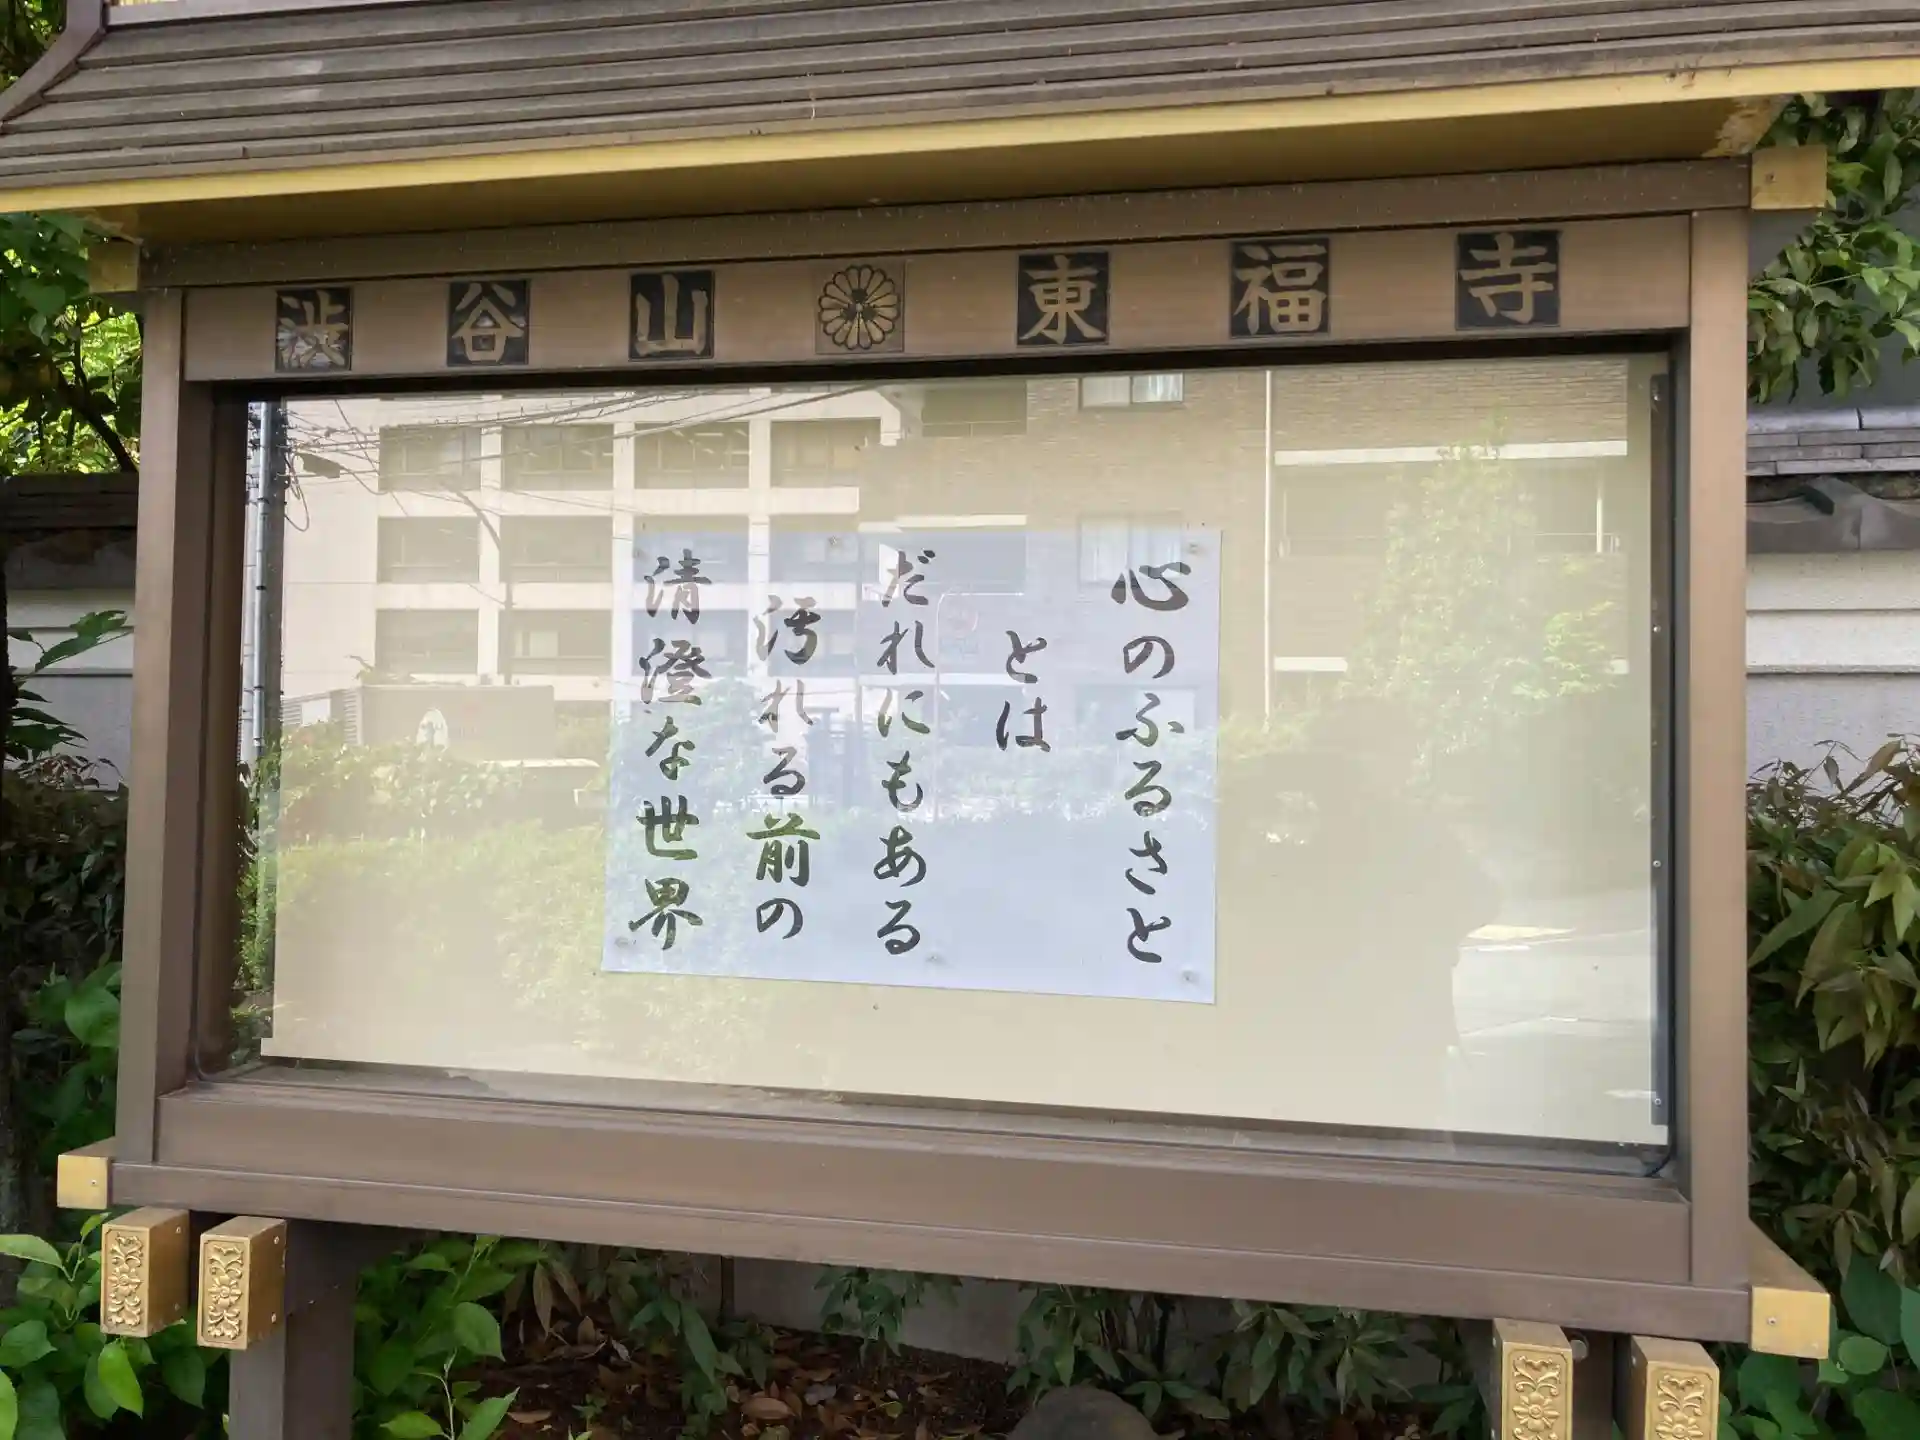 渋谷山東福寺
心のふるさと
とは
だれにもある
汚れる前の
清澄な世界